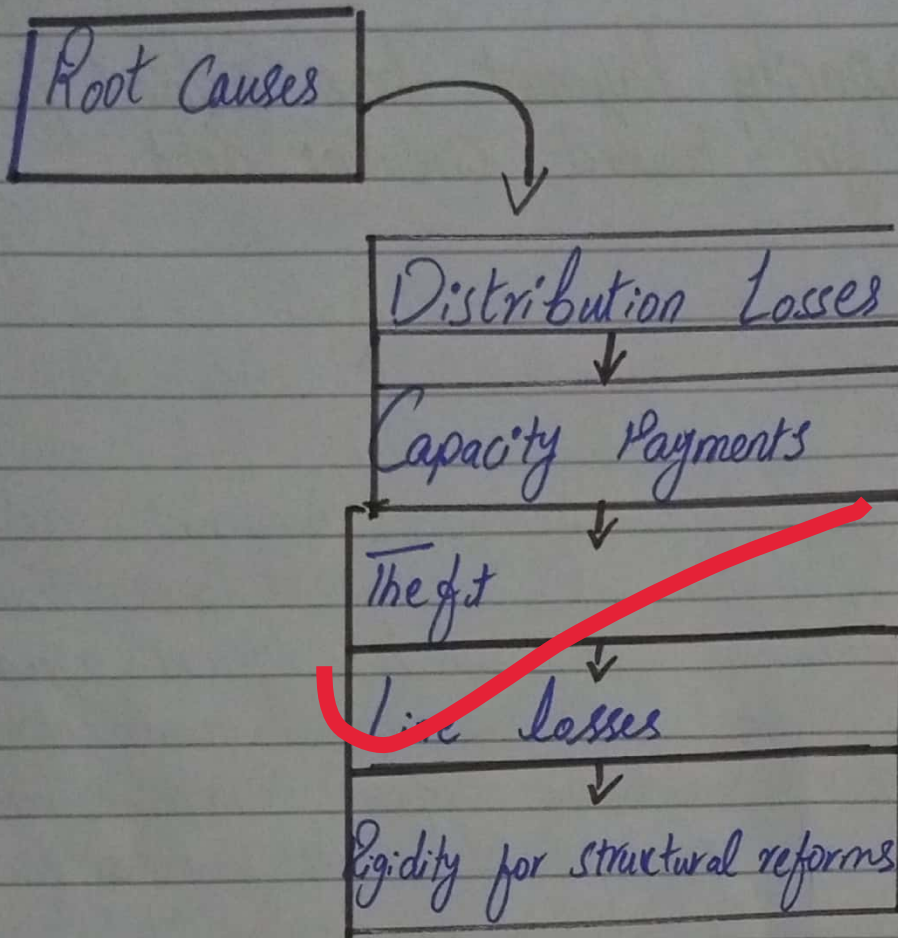 Root Causes
Distribution Losses
Capacity Payments
Theft
Line losses
Rigidity for structural reforms